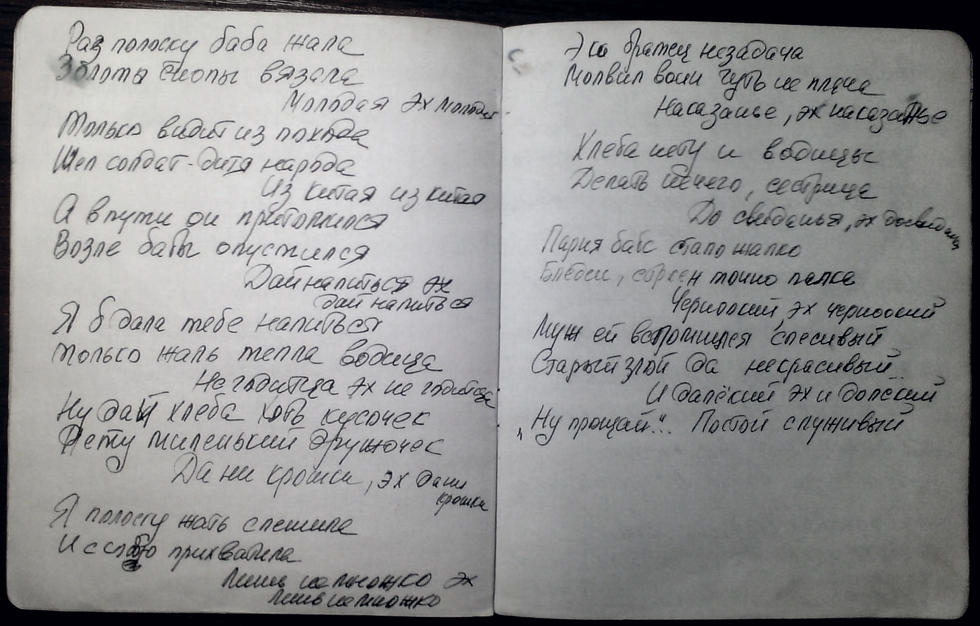 Раз полоску баба жала
Золоты снопы вязала
Молодая эх молодая
Только видит из похода
Шел солдат-дитя народа
Из китая из китая
А в пути он притомился
Возле бабы опустился
Дай напиться эх
дай напиться
Я б дала тебе напиться
Только жаль тепла водица
Не годитца эх не годитца
Ну дай хлеба хоть кусочек
Нету миленький дружочек
Да ни крошки, эх да ни
крошки
Я полоску жать спешила
И с собою прихватила
Лишь немножко эх
Лишь немножко
Эка братец незадача
Молвил воин чуть не плача
Наказанье, эх наказанье
Хлеба нету и водицы
Делать нечего, сестрица
До свиданья, эх досвиданья
Парня бабе стало жалко
Бледен, строен точно палка
Черноокий, эх черноокий
Муж ей вспомнился спесивый
Старый злой да некрасивый
И далёкий эх и далёкий
„Ну прощай“... Постой служивый